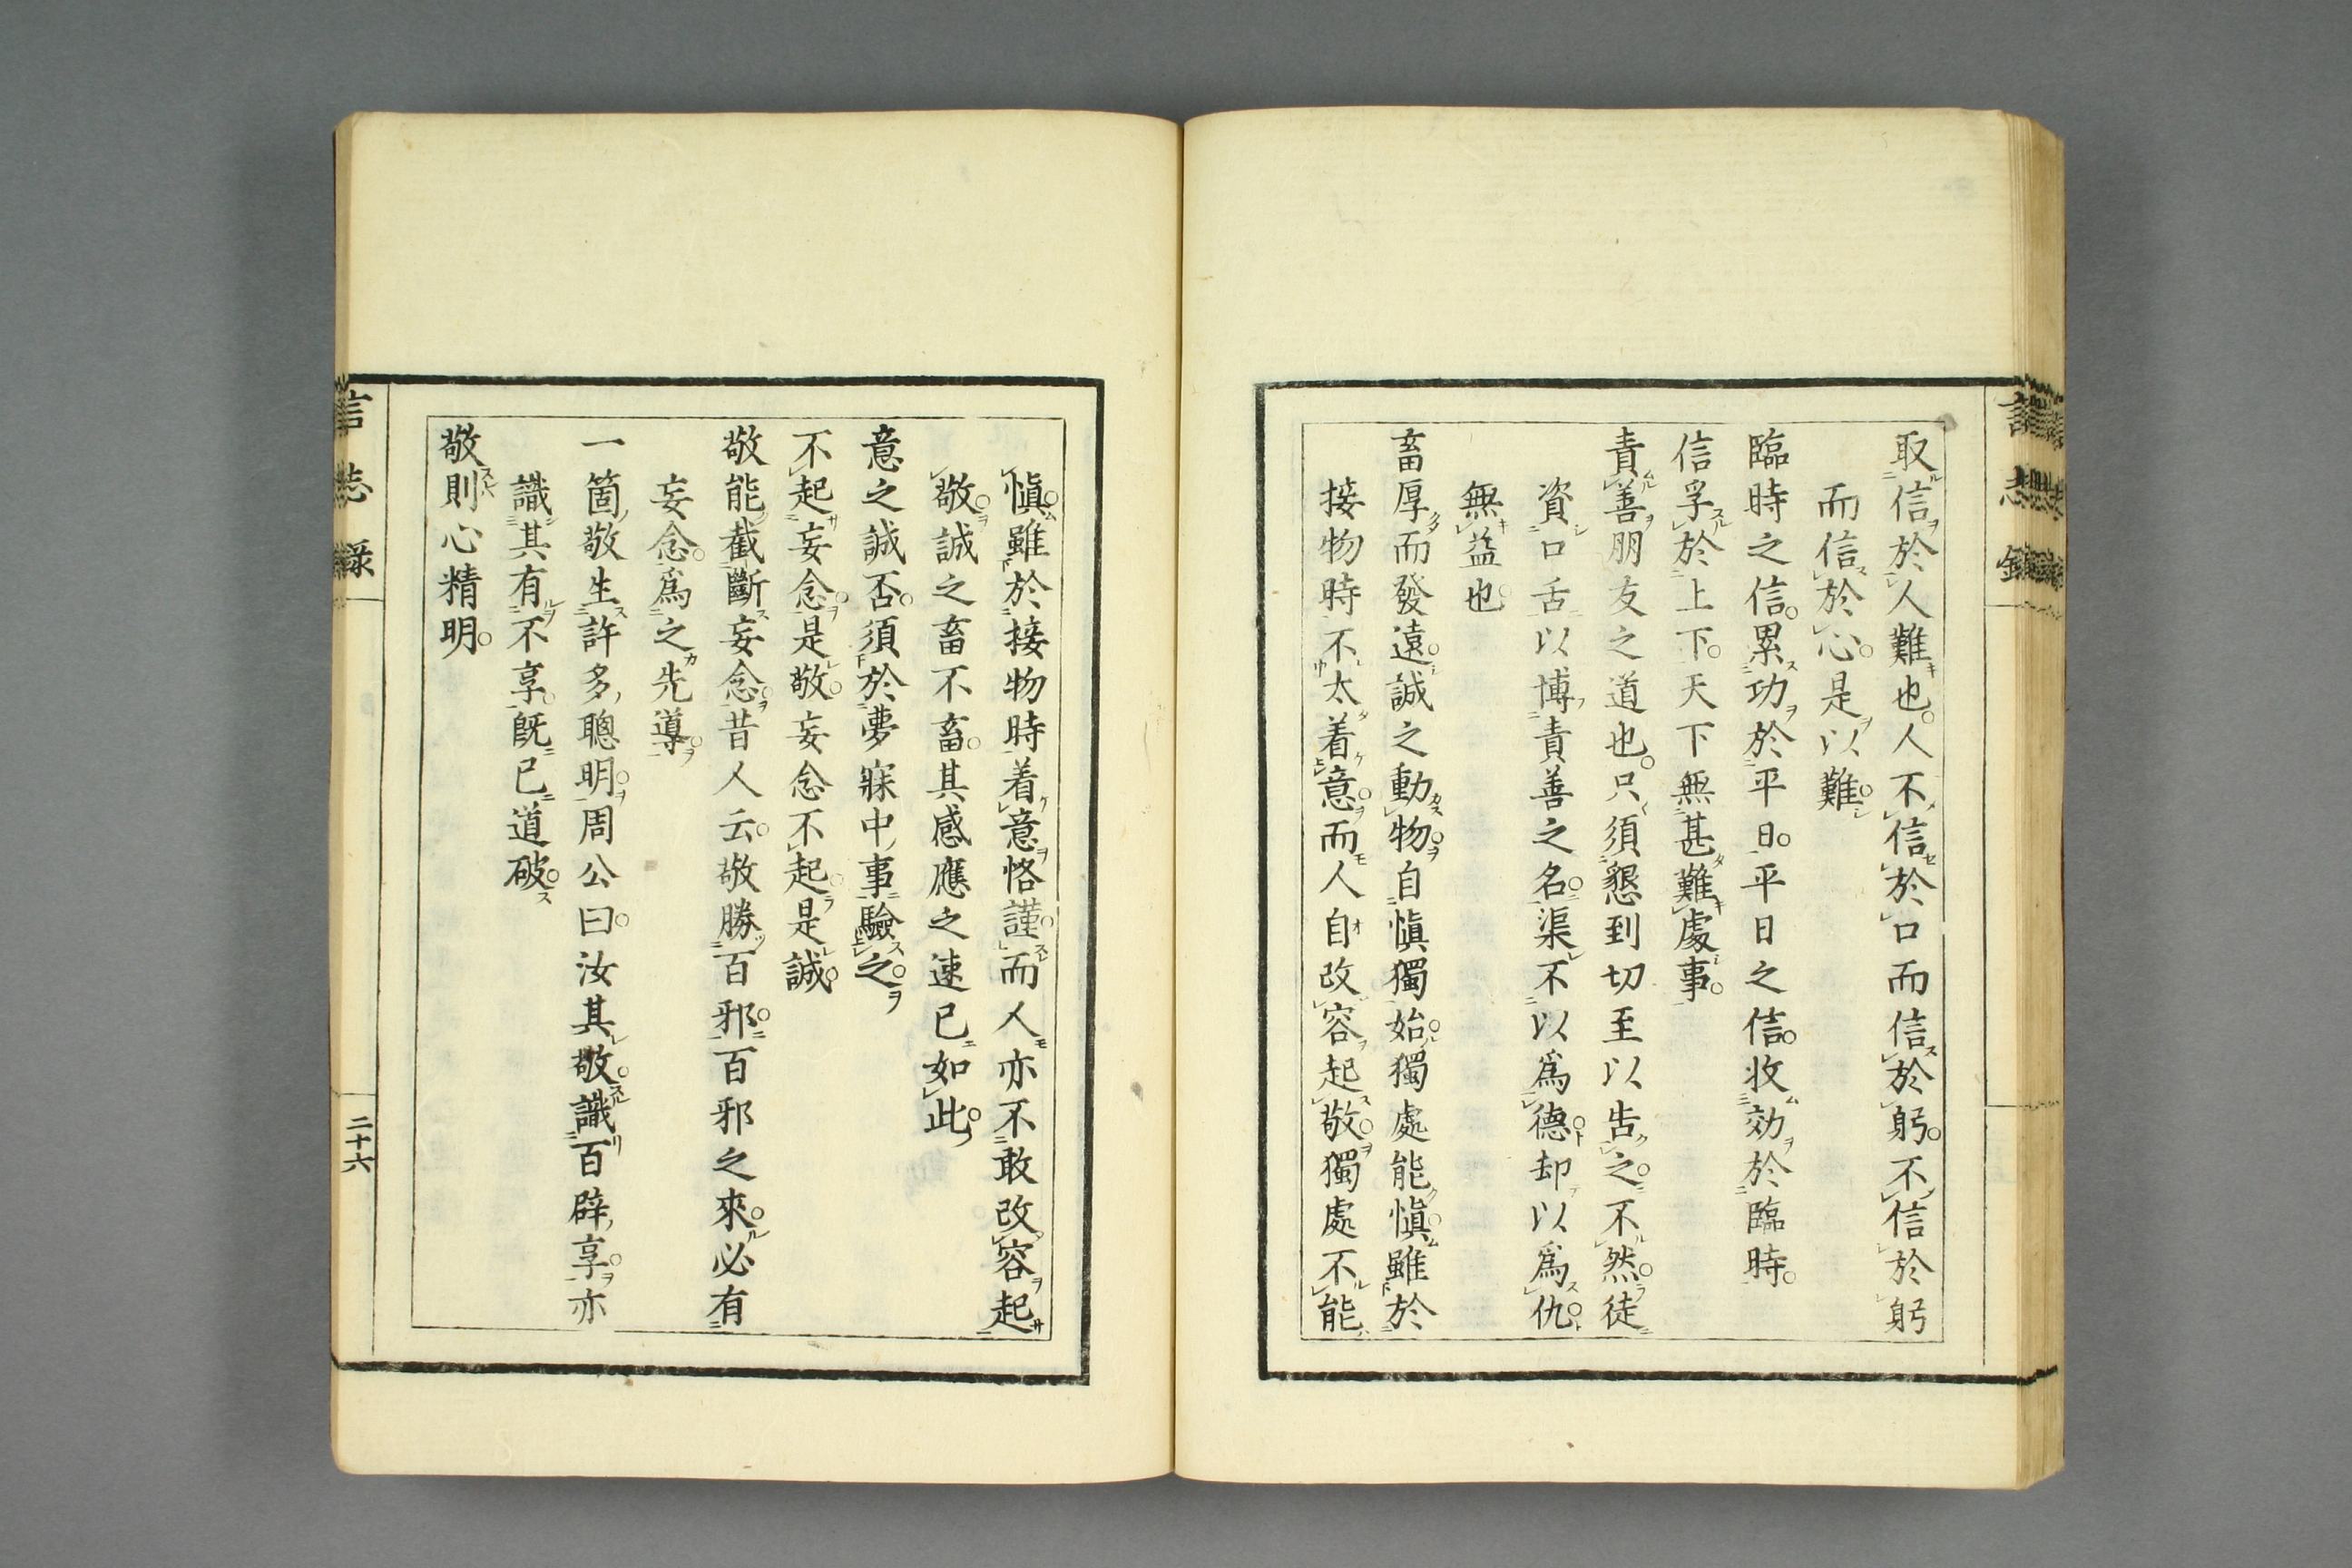 取信於人難也人不信於口而信於躬不信於躬
而信於心是以難
臨時之信累功於平日平日之信收効於臨時
信孚於上下天下無甚難處事
責善朋友之道也只須懇到切至以告之不然徒
資口舌以博責善之名渠不以爲德却以爲仇
無益也
畜厚而發遠誠之動物自愼獨始獨處能愼雖於
接物時不太着意而人自改容起敬獨處不能
愼雖於接物時着意恪謹而人亦不敢改容起
敬誠之畜不畜其感應之速已如此
意之誠否須於夢寐中事驗之
不起妄念是敬妄念不起是誠
敬能截斷妄念昔人云敬勝百邪百邪之來必有
妄念爲之先導
一箇敬生許多聰明周公曰汝其敬識百辟享亦
識其有不享既已道破
敬則心精明
言志録
二十六